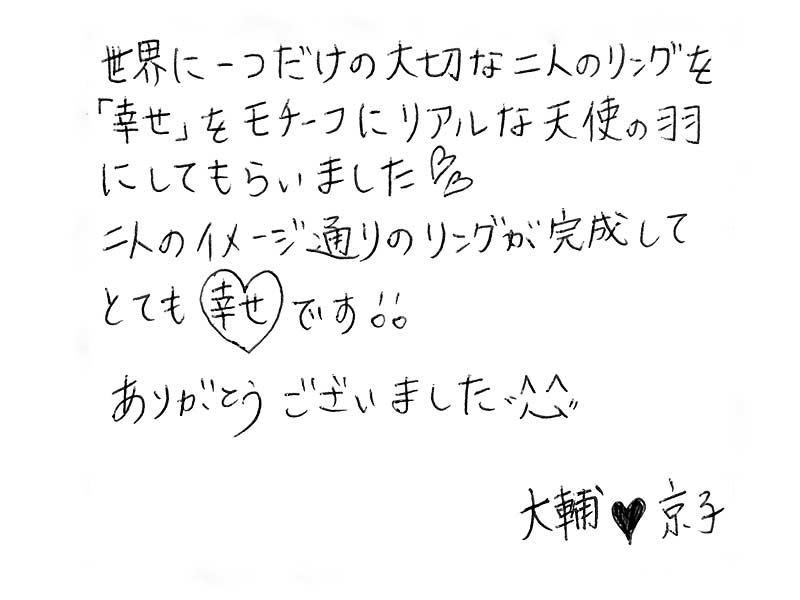 世界に一つだけの大切な二人のリングを
「幸せ」をモチーフにリアルな天使の羽
にしてもらいました
二人のイメージ通りのリングが完成して
とても幸せです!!
ありがとうございました^^
大輔♥京子